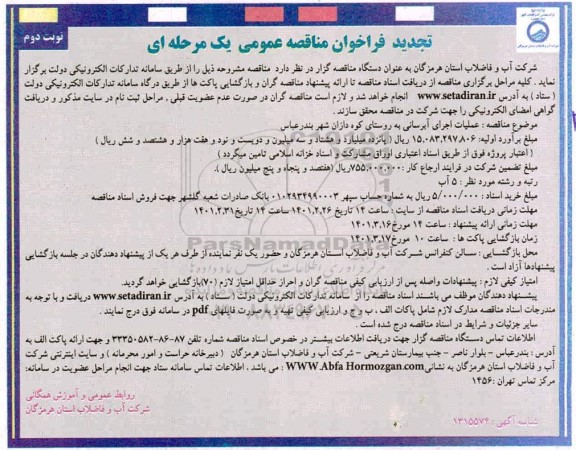 نوبت دوم
تجدید فراخوان مناقصه عمومی یک مرحله ای
شرکت آب و فاضلاب استان هرمزگان به عنوان دستگاه مناقصه گزار در نظر دارد مناقصه مشروحه ذیل را از طریق سامانه تدارکات الکترونیکی دولت برگزار
نماید . کلیه مراحل برگزاری مناقصه از دریافت اسناد مناقصه تا ارائه پیشنهاد مناقصه گران و بازگشایی پاکت ها از طریق درگاه سامانه تدارکات الکترونیکی دولت
( ستاد ) به آدرس www.setadiran.ir انجام خواهد شد و لازم است مناقصه گران در صورت عدم عضویت قبلی ، مراحل ثبت نام در سایت مذکور و دریافت
گواهی امضای الکترونیکی را جهت شرکت در مناقصه محقق سازند .
موضوع مناقصه : عملیات اجرای آبرسانی به روستای کوه دازان شهر بندرعباس
مبلغ برآورد اولیه: ۱۵.۰۸۳.۲۹۷.۸۰۶ ریال ( پانزده میلیارد و هشتاد و سه میلیون و دویست و نود و هفت هزار و هشتصد و شش ریال )
( اعتبار پروژه فوق از طریق اسناد اعتباری اوراق مشارکت و اسناد خزانه اسلامی تامین میگردد )
مبلغ تضمین شرکت در فرایند ارجاع کار :۷۵۵.۰۰۰.۰۰۰ریال (هفتصد و پنجاه و پنج میلیون ریال ).
رتبه و رشته مورد نظر : ۵ آب
مبلغ خرید اسناد : ۵/۰۰۰/۰۰۰ ریال به شماره حساب سپهر ۰۱۰۲۹۳۴۹۹۰۰۰۳ بانک صادرات شعبه گلشهر جهت فروش اسناد مناقصه
مهلت زمانی دریافت اسناد مناقصه از سایت : ساعت ۱۴ تاریخ ۱۴۰۱.۲.۲۶ ساعت ۱۴ تاریخ۱۴۰۱.۲.۳۱
مهلت زمانی ارائه پیشنهاد : ساعت ۱۴ مورخ۱۴۰۱.۳.۱۶
زمان بازگشایی پاکت ها : ساعت ۱۰ مورخ ۱۴۰۱.۳.۱۷
محل بازگشایی : سالن کنفرانس شرکت آب و فاضلاب استان هرمزگان و حضور یک نفر نماینده از طرف هر یک از پیشنهاد دهندگان در جلسه بازگشایی
پیشنهادها آزاد است .
امتیاز کیفی لازم : پیشنهادات واصله پس از ارزیابی کیفی مناقصه گران و احراز حداقل امتیاز لازم (۷۰)بازگشایی خواهد گردید.
پیشنهاد دهندگان موظف می باشند اسناد مناقصه را از سامانه تدارکات الکترونیکی دولت (ستاد) به آدرس www.setadiran.ir دریافت و با توجه به
مندرجات اسناد مناقصه مدارک لازم شامل پاکات الف ، ب و ج و ارزیابی کیفی تهیه و به صورت فایلهای pdf در سامانه فوق درج نمایند .
سایر جزئیات و شرایط در اسناد مناقصه درج شده است .
اطلاعات تماس دستگاه مناقصه گزار جهت دریافت اطلاعات بیشتر در خصوص اسناد مناقصه شماره تلفن ۸۷-۸۶-۳۳۳۵۰۵۸۲ و جهت ارائه پاکت الف به
آدرس : بندرعباس - بلوار ناصر - جنب بیمارستان شریعتی - شرکت آب و فاضلاب استان هرمزگان ( دبیرخانه حراست و امور محرمانه ) و سایت اینترنتی شرکت
آب و فاضلاب استان هرمزگان به نشانیWWW.Abfa Hormozgan.com : می باشد ، اطلاعات تماس سامانه ستاد جهت انجام مراحل عضویت در سامانه:
مرکز تماس تهران :۱۴۵۶
روابط عمومی و آموزش همگانی
شرکت آب و فاضلاب استان هرمزگان
شناسه آگهی : ۱۳۱۵۵۷۴
ParsNamadData